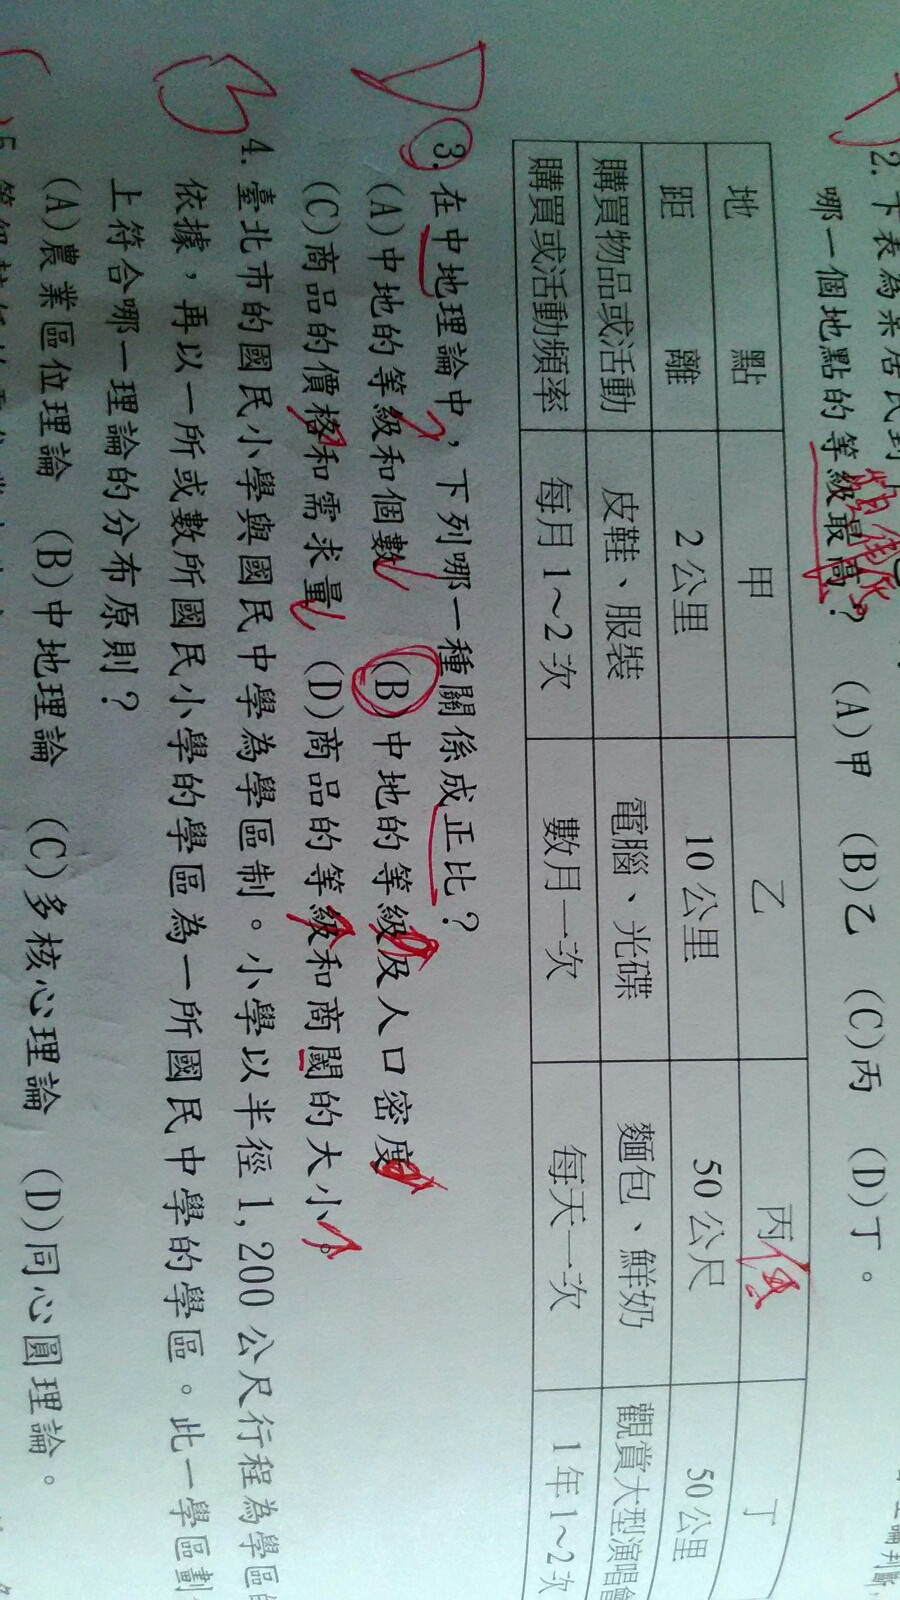 2. 下表為某居民到
哪一個地點的等級最高？ (A)甲 (B)乙 (C)丙 (D)丁。
地點 甲 乙 丙 丁
低
距離 2公里 10公里 50公尺 50公里
購買物品或活動 皮鞋、服裝 電腦、光碟 麵包、鮮奶 觀賞大型演唱會
購買或活動頻率 每月1~2次 數月一次 每天一次 1年1~2次
D
3. 在中地理論中，下列哪一種關係成正比？
(A)中地的等級和個數 (B)中地的等級及人口密度
(C)商品的價格和需求量 (D)商品的等級和商閾的大小。
B
4. 臺北市的國民小學與國民中學為學區制。小學以半徑1,200公尺行程為學區的
依據，再以一所或數所國民小學的學區為一所國民中學的學區。此一學區劃
上符合哪一理論的分布原則？
(A)農業區位理論 (B)中地理論 (C)多核心理論 (D)同心圓理論。